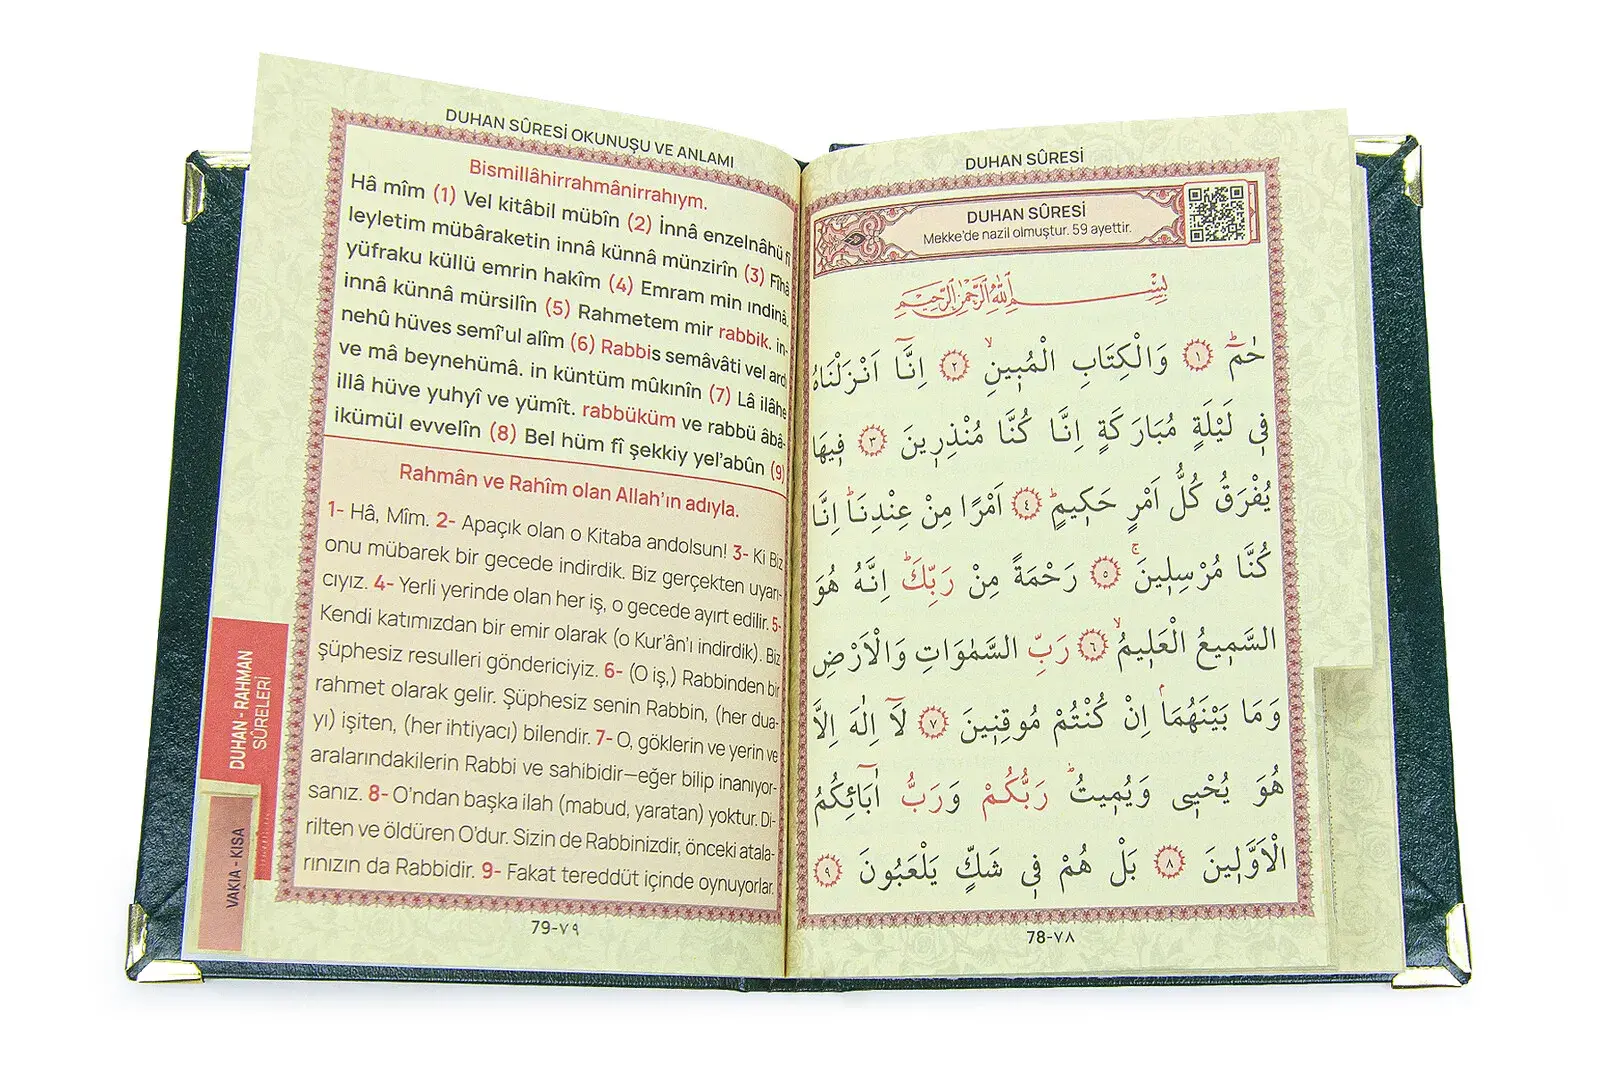 DUHAN SÛRESİ OKUNUŞU VE ANLAMI
Bismillâhirrahmânirrahıym.
Hâ mîm (1) Vel kitâbil mübîn (2) İnnâ enzelnâhü fî
leyletim mübâraketin innâ künnâ münzirîn (3) Fîhâ
yüfraku küllü emrin hakîm (4) Emram min ındinâ.
innâ künnâ mürsilîn (5) Rahmetem mir rabbik. in-
nehû hüves semî'ul alîm (6) Rabbis semâvâti vel ard
ve mâ beynehümâ. in küntüm mûkınîn (7) Lâ ilâhe
illâ hüve yuhyî ve yümît. rabbüküm ve rabbü âbâ-
ikümül evvelîn (8) Bel hüm fî şekkiy yel'abûn (9)
Rahmân ve Rahîm olan Allah'ın adıyla.
1- Hâ, Mîm. 2- Apaçık olan o Kitaba andolsun! 3- Ki Biz
onu mübarek bir gecede indirdik. Biz gerçekten uyarı-
cıyız. 4- Yerli yerinde olan her iş, o gecede ayırt edilir. 5-
Kendi katımızdan bir emir olarak (o Kur'ân'ı indirdik). Biz
şüphesiz resulleri göndericiyiz. 6- (O iş,) Rabbinden bir
rahmet olarak gelir. Şüphesiz senin Rabbin, (her dua-
yı) işiten, (her ihtiyacı) bilendir. 7- O, göklerin ve yerin ve
aralarındakilerin Rabbi ve sahibidir—eğer bilip inanıyor-
sanız. 8- O'ndan başka ilah (mabud, yaratan) yoktur. Di-
rilten ve öldüren O'dur. Sizin de Rabbinizdir, önceki atala-
rınızın da Rabbidir. 9- Fakat tereddüt içinde oynuyorlar.
79-٧٩
DUHAN - RAHMAN
SÛRELERİ
VAKIA - KISA
DUHAN SÛRESİ
DUHAN SÛRESİ
Mekke'de nazil olmuştur. 59 ayettir.
بِسْمِ اللّٰهِ الرَّحْمٰنِ الرَّحِيمِ
حٰمٓ ۚ ﴿١﴾ وَالْكِتَابِ الْمُبِينِ ۙ ﴿٢﴾ اِنَّٓا اَنْزَلْنَاهُ
فِي لَيْلَةٍ مُبَارَكَةٍ اِنَّا كُنَّا مُنْذِرِينَ ﴿٣﴾ فِيهَا
يُفْرَقُ كُلُّ اَمْرٍ حَكِيمٍ ۙ ﴿٤﴾ اَمْرًا مِنْ عِنْدِنَا ۜ اِنَّا
كُنَّا مُرْسِلِينَ ۚ ﴿٥﴾ رَحْمَةً مِنْ رَبِّكَ ۜ اِنَّهُ هُوَ
السَّمِيعُ الْعَلِيمُ ۙ ﴿٦﴾ رَبِّ السَّمٰوَاتِ وَالْاَرْضِ
وَمَا بَيْنَهُمَا ۢ اِنْ كُنْتُمْ مُوقِنِينَ ﴿٧﴾ لَٓا اِلٰهَ اِلَّا
هُوَ يُحْيِي وَيُمِيتُ ۜ رَبُّكُمْ وَرَبُّ اٰبَٓائِكُمُ
الْاَوَّلِينَ ﴿٨﴾ بَلْ هُمْ فِي شَكٍّ يَلْعَبُونَ ﴿٩﴾
78-٧٨